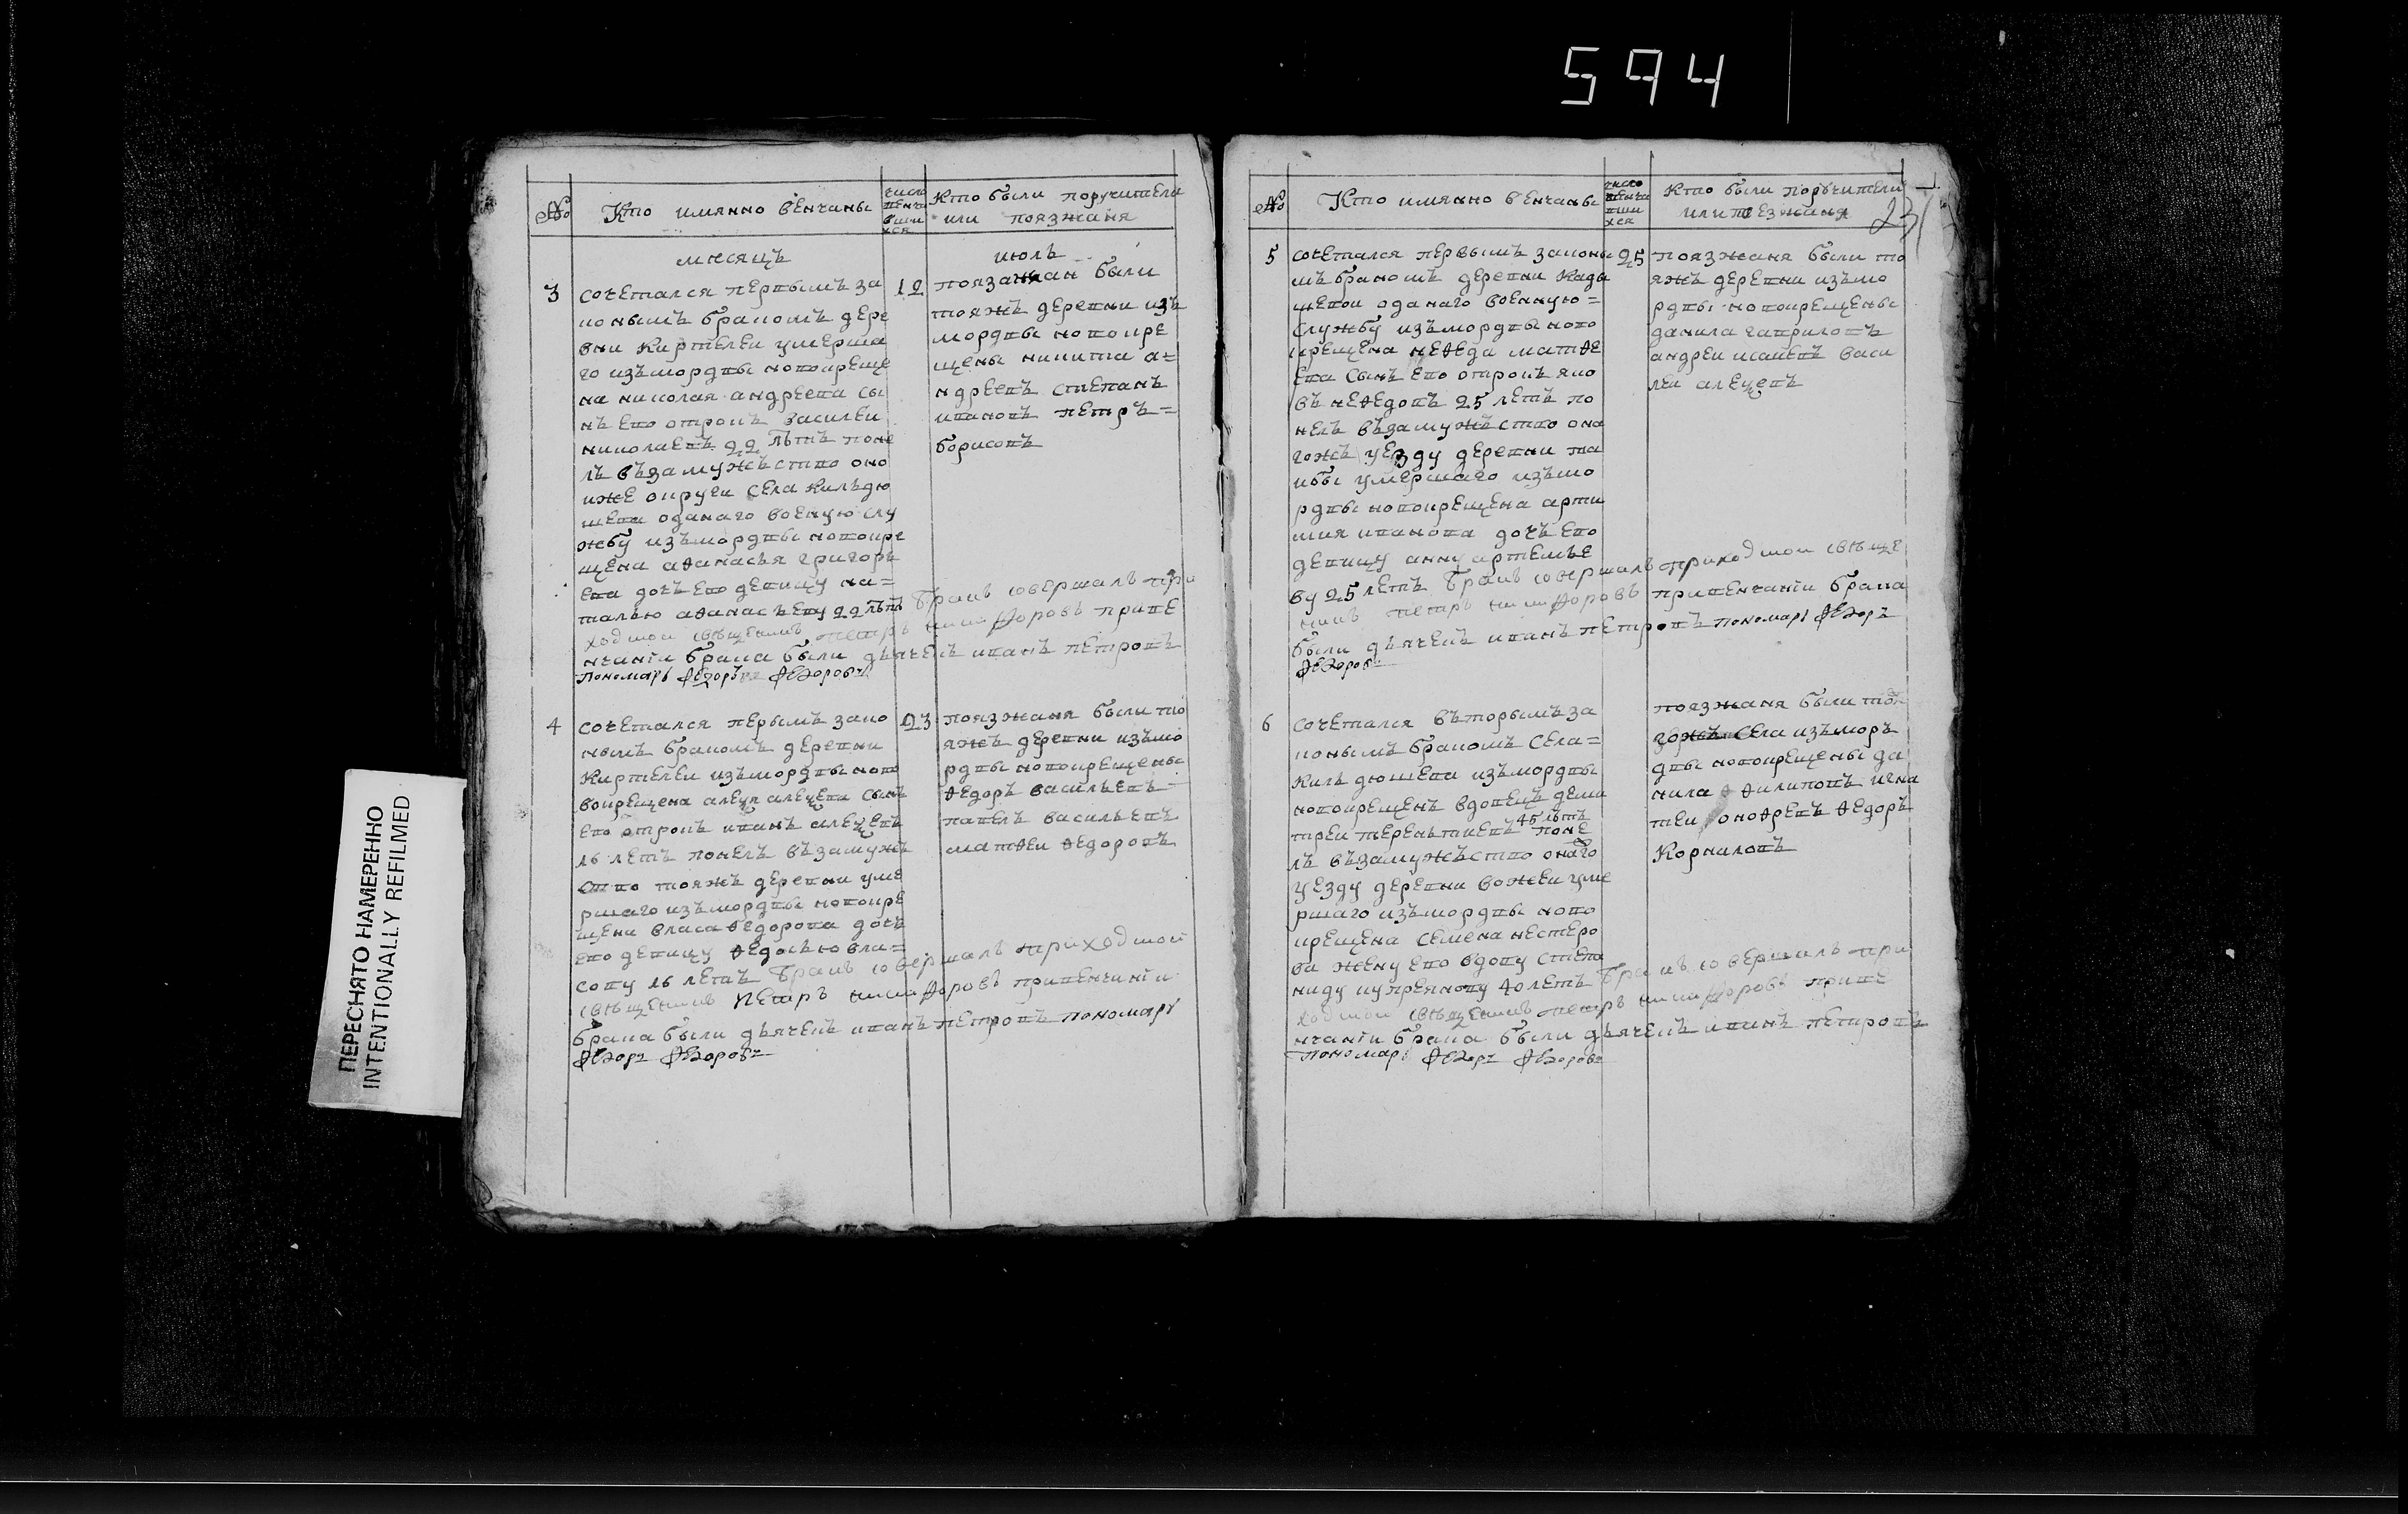 594
№
Кто имянно венчаны
число
венча
вши
хся
Кто были поручители
или поязжаня
месяцъ
июль
3
сочетался первымъ за
коннымъ бракомъ дере
вни Киртелеи умерша
го изъ мордвы новокреще
на николая андреева сы
нъ ево отрокъ василеи
николаевъ 22 лѣтъ поне
лъ въ замужъство оно
иже округи села Кильдю
шева оданаго военую слу
жбу изъ мордвы новокре
щена аѳанасья григорь
ева дочь ево девицу на=
талью аѳанасьеву 22 лѣтъ бракъ совершалъ при
ходской священикъ петръ никифоровъ приве
нчаніи брака были дьячекъ иванъ петровъ
пономарь Ѳедоръ Ѳедоровъ
12
поязжан были
тояжъ деревни изъ
мордвы новокре
щены никита а=
ндреевъ степанъ
ивановъ петръ=
борисовъ
4
сочетался первымъ зако
нымъ бракомъ деревни
Киртелеи изъ мордвы ново
вокрещена алеѯя алеѯева сынъ
ево отрокъ иванъ алеѯевъ
16 летъ понелъ въ замужъ
ство тояжъ деревни уме
ршаго изъ мордвы новокре
щена власа ѳедорова дочь
ево девицу ѳедосью вла=
сову 16 летъ бракъ совершалъ приходской
священикъ Петръ никифоровъ привенчаніи
брака были дьячекъ иванъ петровъ пономарь
Ѳедоръ Ѳедоровъ
23
поязжаня были то
яжъ деревни изъ мо
рдвы новокрещены
ѳедоръ васильевъ
павелъ васильевъ
матѳеи ѳедоровъ
23
№
Кто имянно венчаны
число
венча
вши
хся
Кто были поручители
или поезжаня
5
сочетался первымъ законы
мъ бракомъ деревни Кады
шевои оданаго военную=
службу изъ мордвы ново
крещена неѳеда матѳе
ева сынъ ево отрокъ яко
въ неѳедовъ 25 летъ по
нелъ въ замужъство она
гожъ уезду деревни та
ибы умершаго изъ мо
рдвы новокрещена арти
мия иванова дочь ево
девицу анну артемье
ву 25 летъ бракъ совершалъ приходской свяще
никъ петръ никифоровъ привенчаніи брака
были дьячекъ иванъ петровъ пономарь Ѳедоръ
Ѳедоровъ
25
поязжаня были то
яжъ деревни изъ мо
рдвы новокрещены
данила гавриловъ
андреи исаиевъ васи
леи алеѯевъ
6
сочетался въторымъ за
конымъ бракомъ села=
Кильдюшева изъ мордвы
новокрещенъ вдовецъ дими
треи терентиевъ 45 лѣтъ поне
лъ въ замужъство онаго
уезду деревни вожеи уме
ршаго изъ мордвы ново
крещена семена нестеро
ва жену ево вдову степа
ниду купреянову 40 летъ бракъ совершалъ при
ходской священикъ петръ никифоровъ приве
нчаніи брака были дьячекъ иванъ петровъ
пономарь Ѳедоръ Ѳедоровъ
поязжаня были тои
гожъ села изъ моръ
двы новокрещены да
нила ѳилиповъ игна
теи оноѳревъ ѳедоръ
Корниловъ
ПЕРЕСНЯТО НАМЕРЕННО
INTENTIONALLY REFILMED